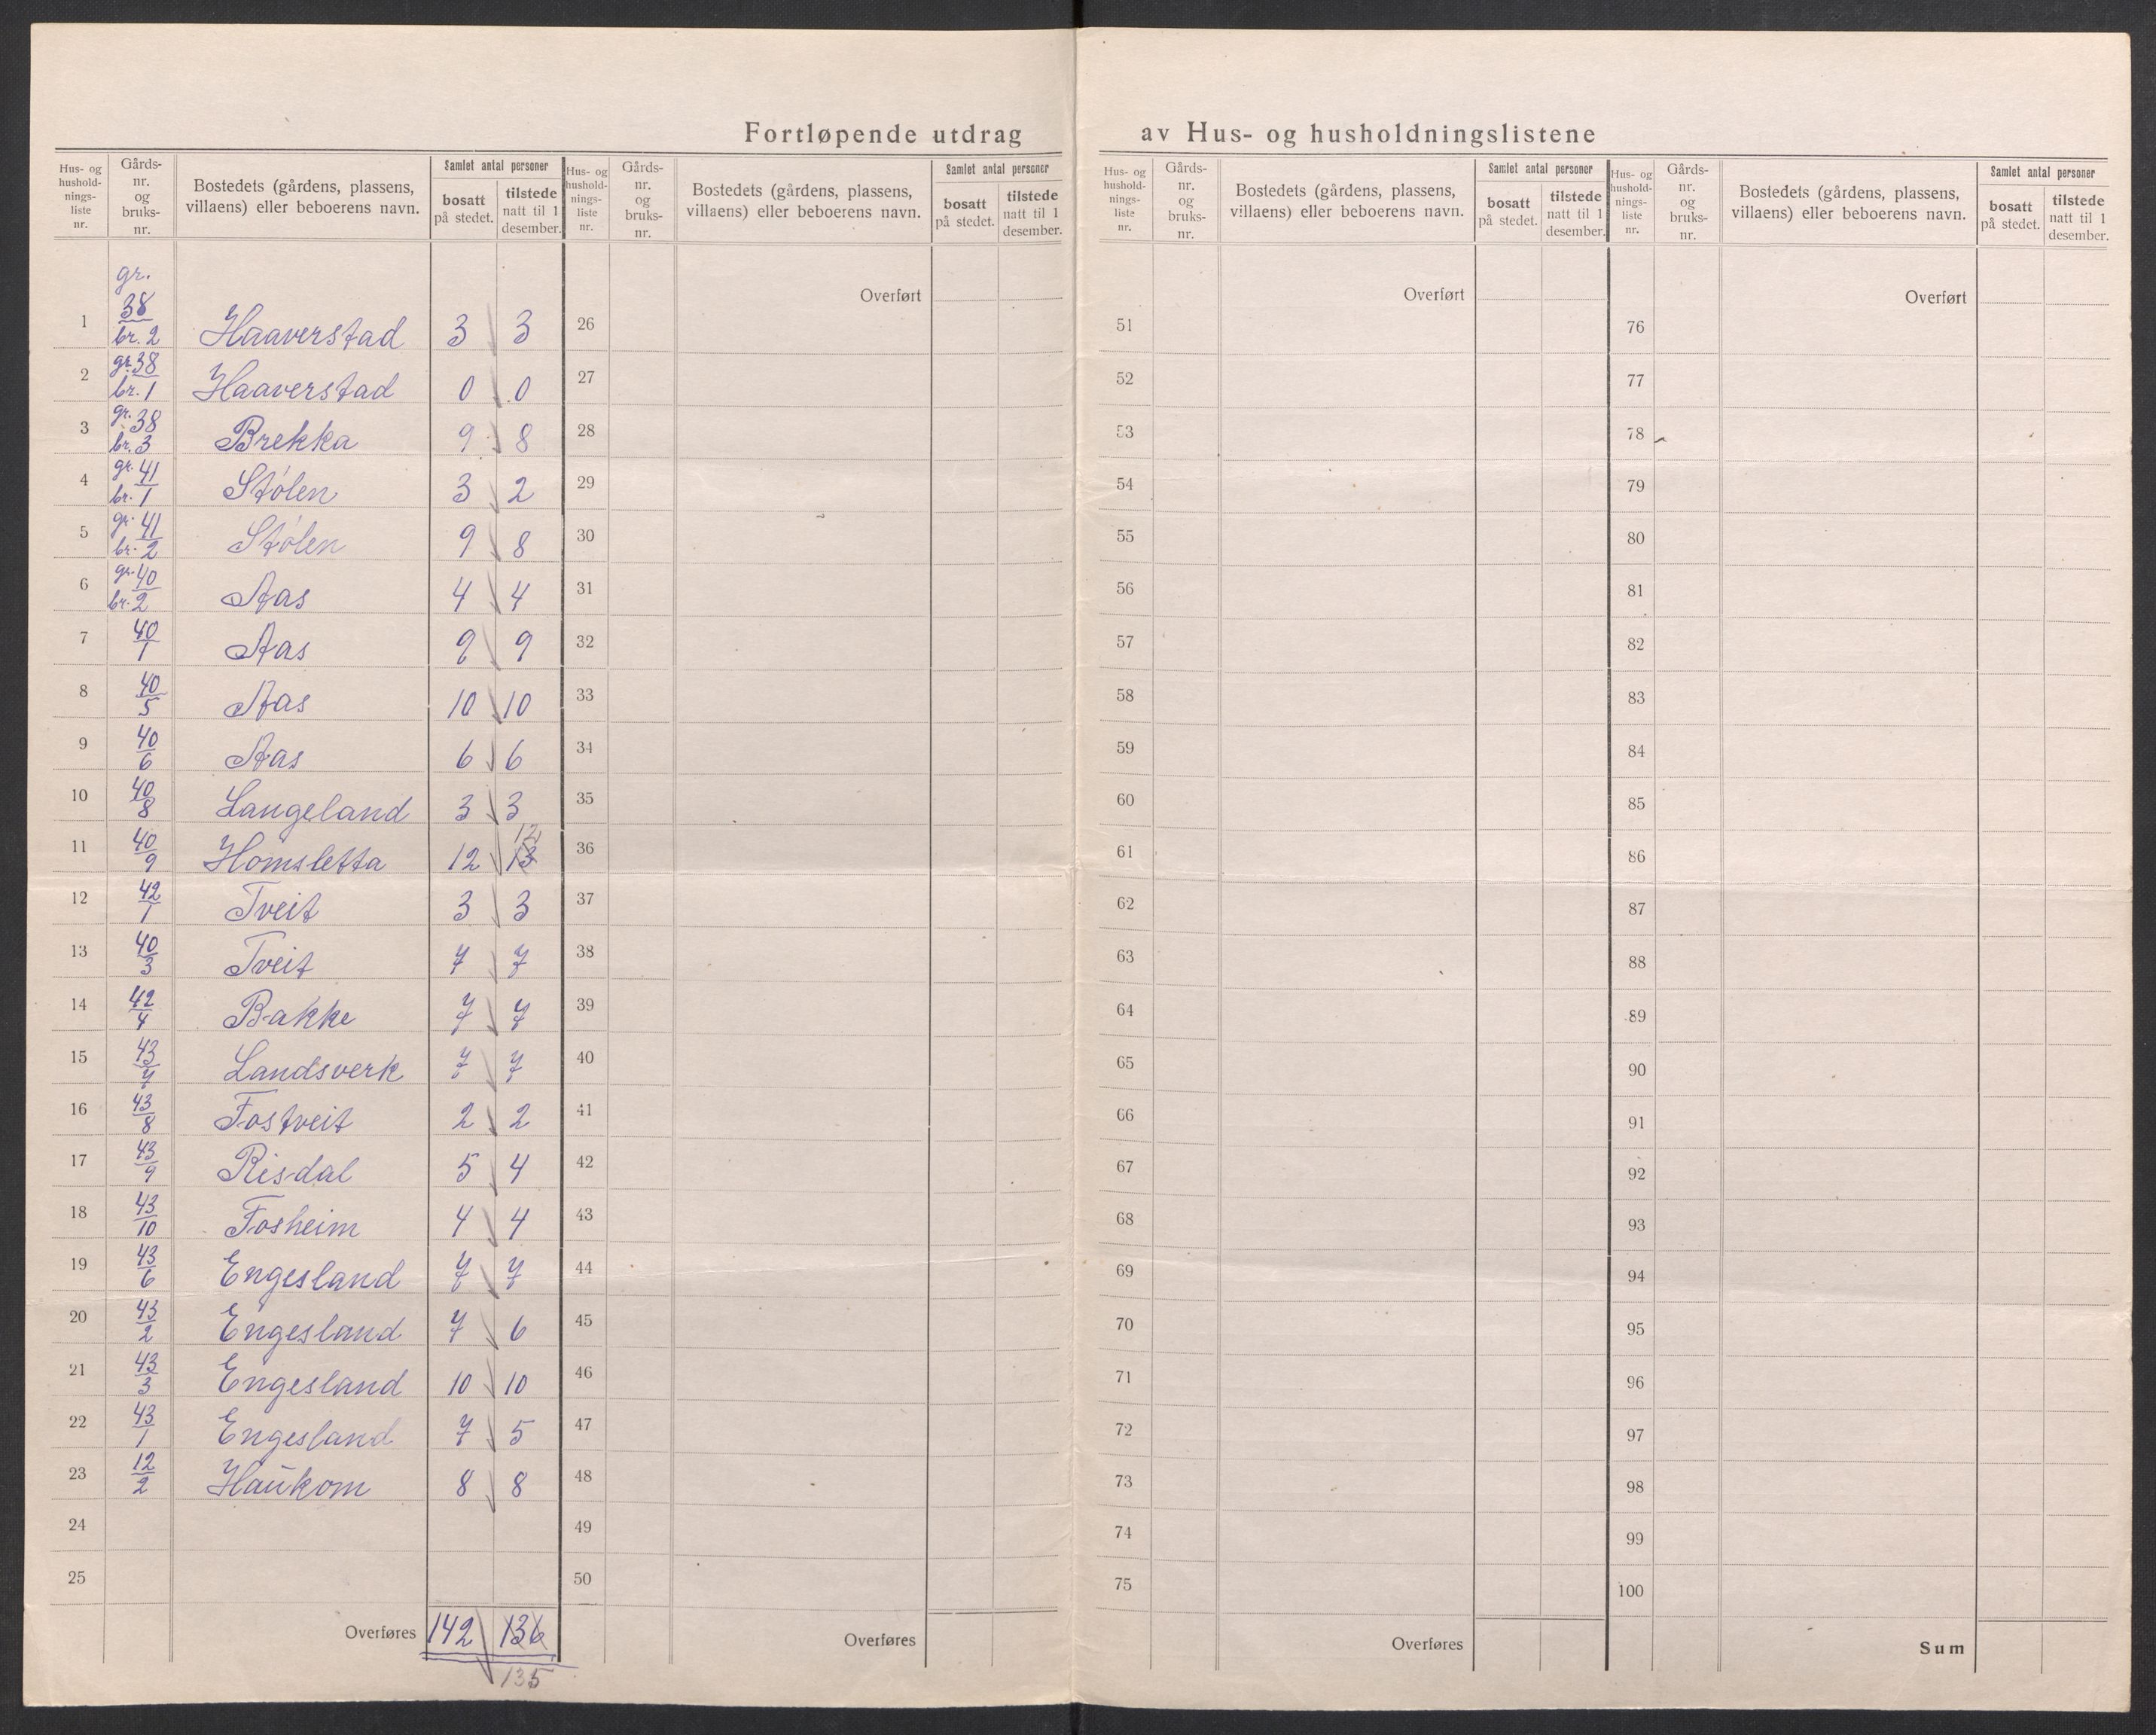 Fortløpende utdrag av Hus- og husholdningslistene
Hus- og hushold-nings-liste nr. | Gårds-nr. og bruks-nr. | Bostedets (gårdens, plassens, villaens) eller beboerens navn. | Samlet antal personer | bosatt på stedet. | tilstede natt til 1 desember.
1 | gr. 38 br. 2 | Haaverstad | 3 | 3
2 | gr. 38 br. 1 | Haaverstad | 0 | 0
3 | gr. 38 br. 3 | Brekka | 9 | 8
4 | gr. 41 br. 1 | Stølen | 3 | 2
5 | gr. 41 br. 2 | Stølen | 9 | 8
6 | gr. 40 br. 2 | Aas | 4 | 4
7 | 40/1 | Aas | 9 | 9
8 | 40/5 | Aas | 10 | 10
9 | 40/6 | Aas | 6 | 6
10 | 40/8 | Langeland | 3 | 3
11 | 40/9 | Homsletta | 12 | 13 12
12 | 42/1 | Tveit | 3 | 3
13 | 40/3 | Tveit | 7 | 7
14 | 42/4 | Bakke | 7 | 7
15 | 43/7 | Landsverk | 7 | 7
16 | 43/8 | Fostveit | 2 | 2
17 | 43/9 | Risdal | 5 | 4
18 | 43/10 | Fosheim | 4 | 4
19 | 43/6 | Engesland | 7 | 7
20 | 43/2 | Engesland | 7 | 6
21 | 43/3 | Engesland | 10 | 10
22 | 43/1 | Engesland | 7 | 5
23 | 12/2 | Haukom | 8 | 8
24
25
Overføres 142 | 136
135
Hus- og hushold-nings-liste nr. | Gårds-nr. og bruks-nr. | Bostedets (gårdens, plassens, villaens) eller beboerens navn. | Samlet antal personer | bosatt på stedet. | tilstede natt til 1 desember.
Overført
26
27
28
29
30
31
32
33
34
35
36
37
38
39
40
41
42
43
44
45
46
47
48
49
50
Overføres
Hus- og hushold-nings-liste nr. | Gårds-nr. og bruks-nr. | Bostedets (gårdens, plassens, villaens) eller beboerens navn. | Samlet antal personer | bosatt på stedet. | tilstede natt til 1 desember.
Overført
51
52
53
54
55
56
57
58
59
60
61
62
63
64
65
66
67
68
69
70
71
72
73
74
75
Overføres
Hus- og hushold-nings-liste nr. | Gårds-nr. og bruks-nr. | Bostedets (gårdens, plassens, villaens) eller beboerens navn. | Samlet antal personer | bosatt på stedet. | tilstede natt til 1 desember.
Overført
76
77
78
79
80
81
82
83
84
85
86
87
88
89
90
91
92
93
94
95
96
97
98
99
100
Sum